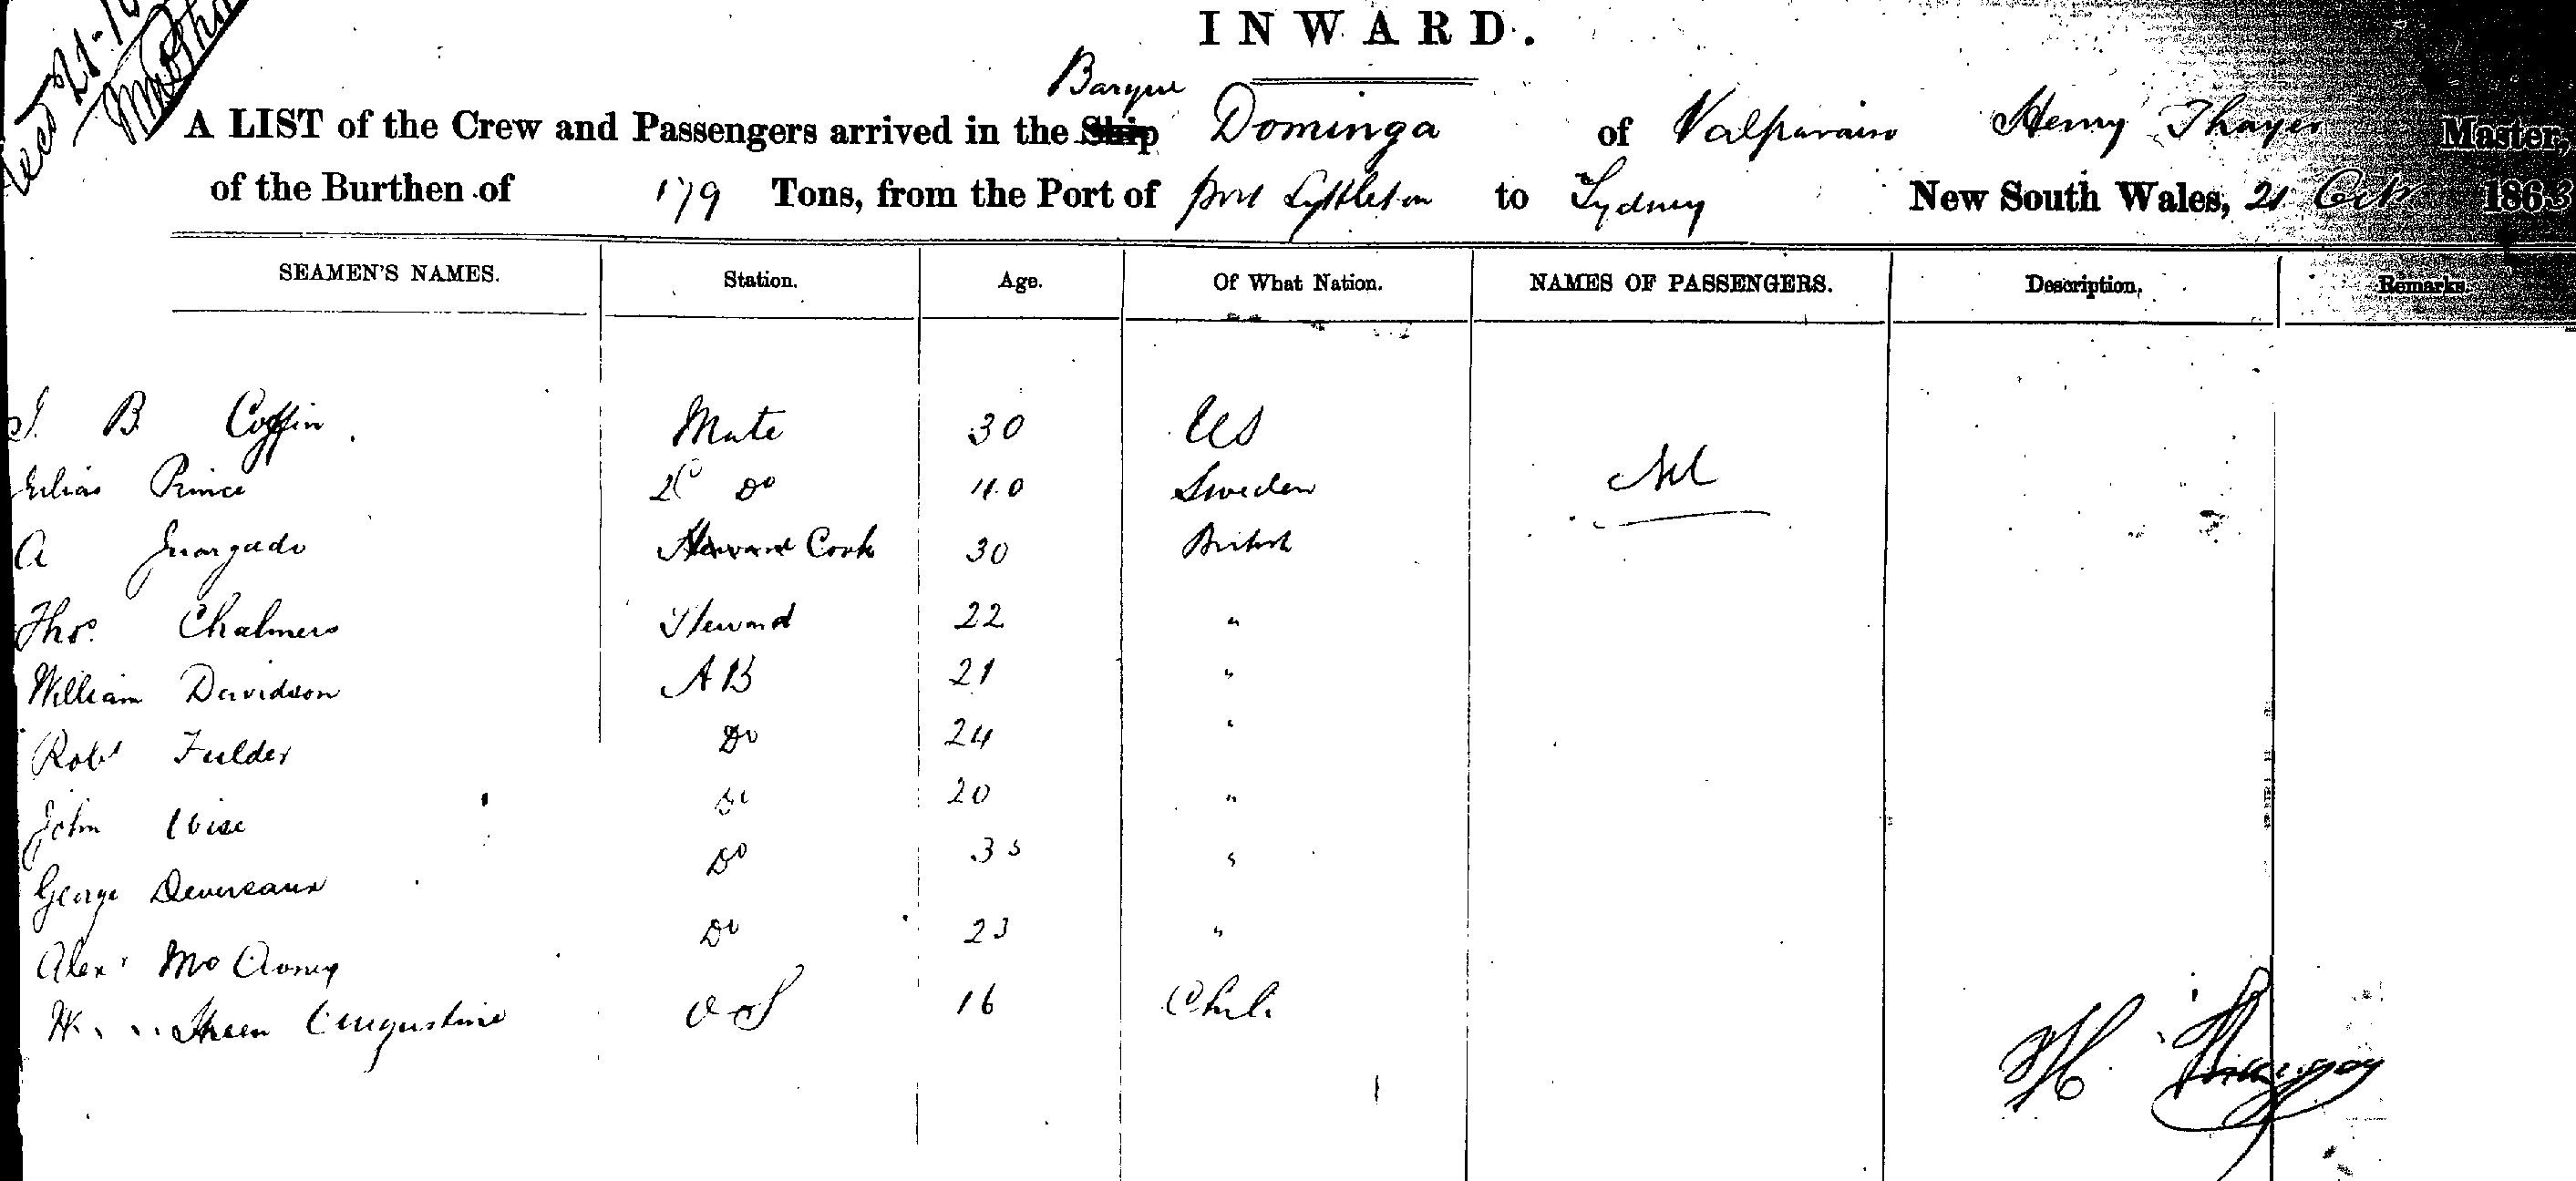 INWARD.
Barque
A LIST of the Crew and Passengers arrived in the Ship Dominga of Valparaiso Henry Thayer Master,
of the Burthen of 179 Tons, from the Port of port Lyttleton to Sydney New South Wales, 21 Oct 1863
SEAMEN'S NAMES. Station. Age. Of What Nation. NAMES OF PASSENGERS. Description. Remarks.
B Coffin Mate 30 US
Nil
Prince 2d Do 40 Sweden
A Steward Cook 30 British
Thos. Chalmers Steward 22 "
William Davidson AB 21 "
Robt Do 24 "
John Wise Do 20 "
George Devereaux Do 35 "
Alexr Do 23 "
Augustine OS 16 Chili
H.